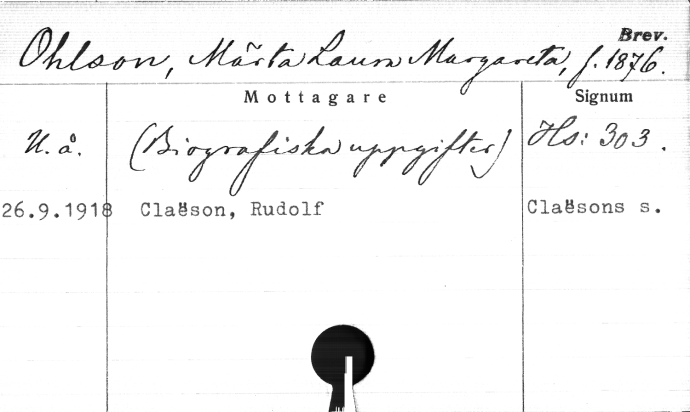 Brev.
Ohlson, Märta Laura Margareta, f. 1876.
Mottagare Signum
U. å. (Biografiska uppgifter) Hs: 303.
26.9.1918 Claëson, Rudolf Claësons s.